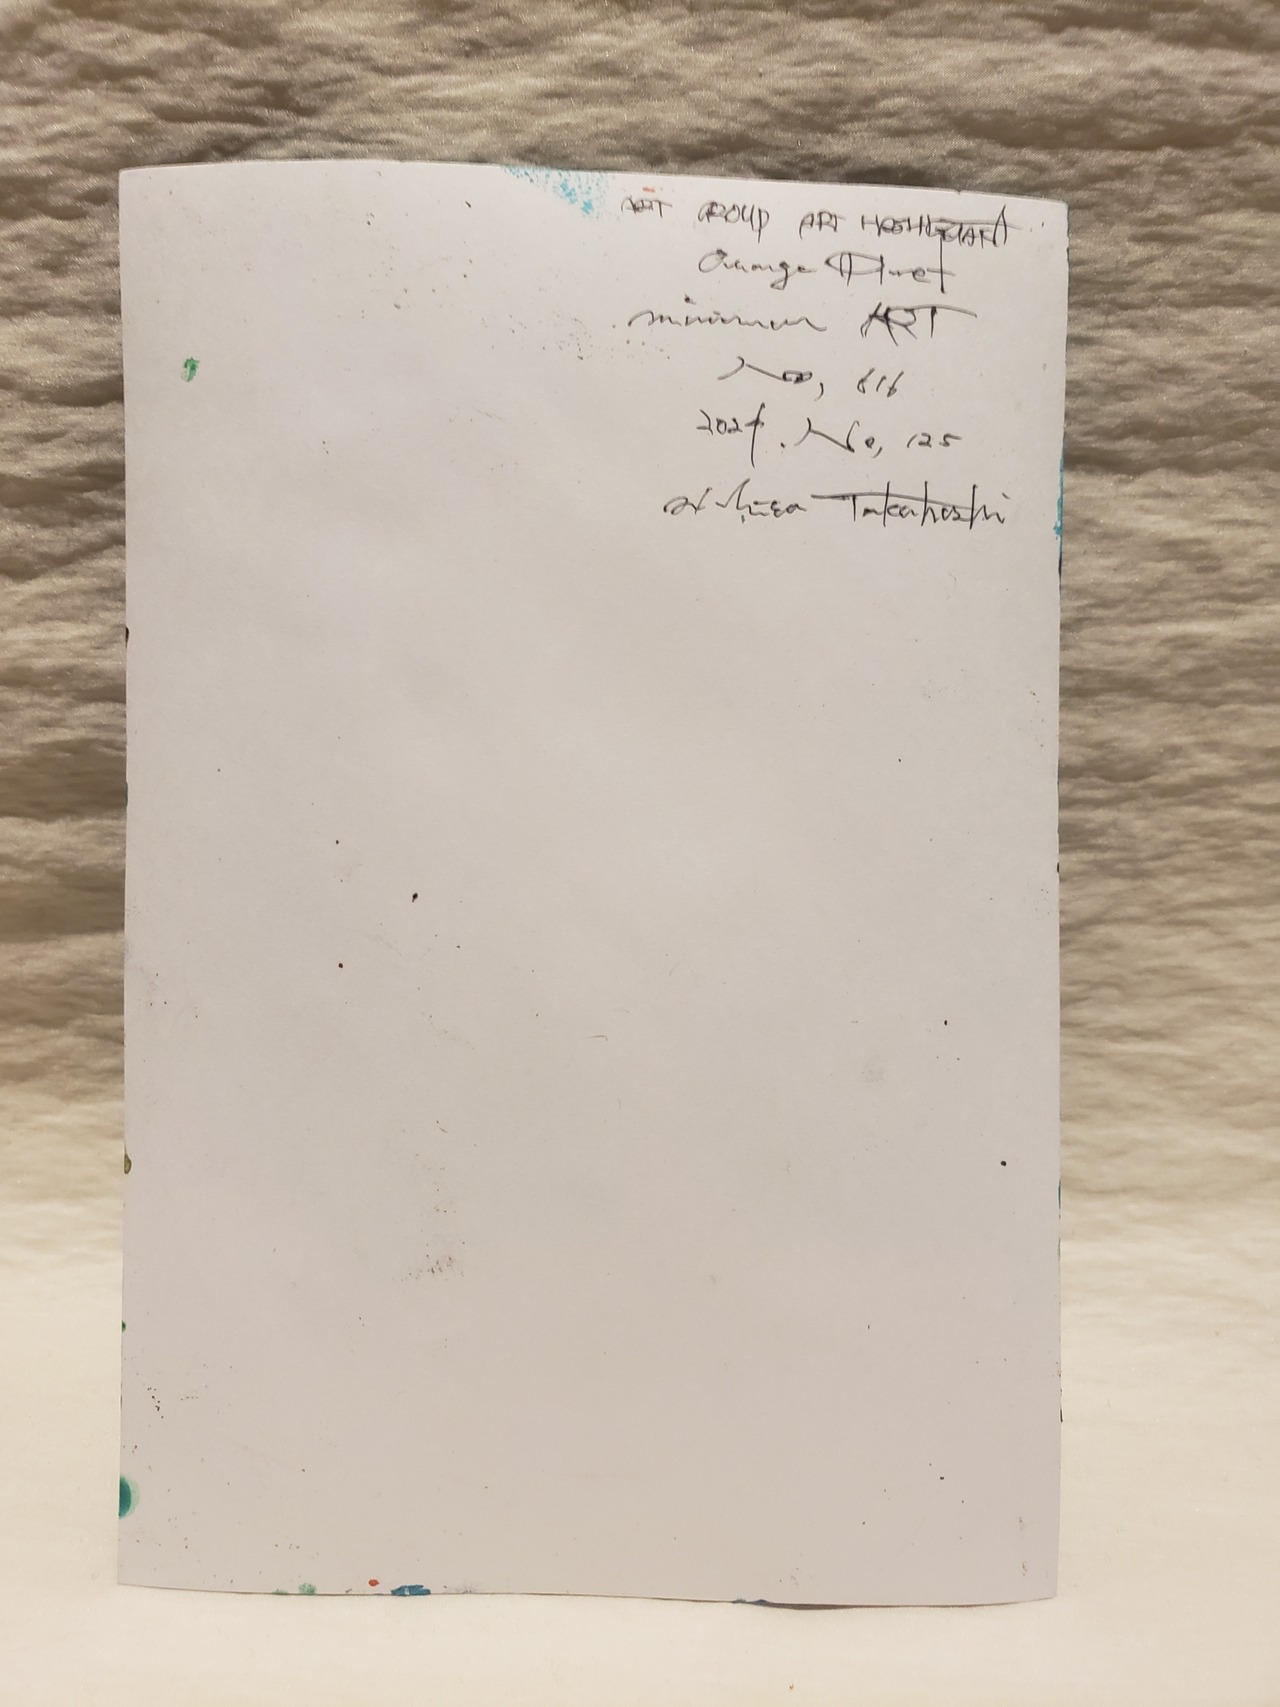 ART GROUP ART
Orange Planet
minimum ART
No, 616
2024. No, 125
Takahashi